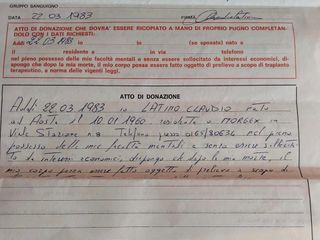 GRUPPO SANGUIGNO
DATA 22.03.1983 FIRMA
ATTO DI DONAZIONE CHE DOVRA' ESSERE RICOPIATO A MANO DI PROPRIO PUGNO COMPLETAN-
DOLO CON I DATI RICHIESTI:
Addì 22.03 io (se sposata) nato a
il residente a in via telefono
nel pieno possesso delle mie facoltà mentali e senza essere sollecitato da interessi economici, di-
spongo che dopo la mia morte, il mio corpo possa essere fatto oggetto di prelievo a scopo di trapianto
terapeutico, a norma delle vigenti leggi.
ATTO DI DONAZIONE
Addì 22.03.1983 io LATINO CLAUDIO nato
ad Aosta il 10.01.1960 residente a MORGEX in
Viale Stazione n.8 Telefono 0165/80634 nel pieno
possesso delle mie facoltà mentali e senza essere sollecita-
to da interessi economici, dispongo che dopo la mia morte, il
mio corpo possa essere fatto oggetto di prelievo a scopo di